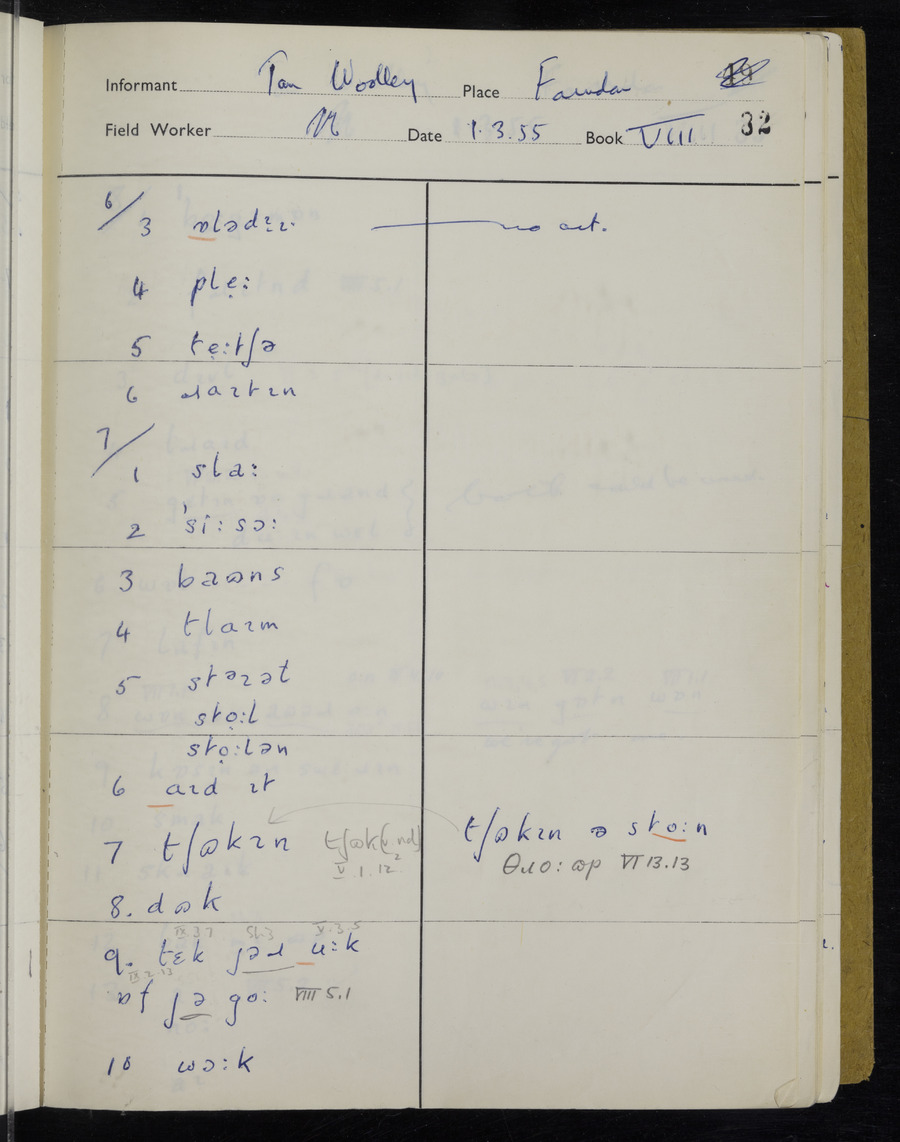 Informant Tom Woolley Place Farndon
Field Worker Date 1.3.55 Book VIII 32
6/3 ɒlədɪː no art.
4 plẹː
5 tẹːtʃə
6 ɹaɪtɪn
7/1 slaː
2 ˈsiːsɔː
3 baɷns
4 tlaɪm
5 stəɪət
stọːl
stọːlən
6 aɪd ɪt
7 tʃɷkɪn tʃɷk(ɪnd) V.1.12² tʃɷkɪn ə stoːn
θɹoːɷp VI 13.13
8. dɷk
IX.3.7 SI.3 V.3.5
9. tɛk jəɹ uːk
IX.2.13
ɒf jə goː VIII 5.1
10 wɔːk